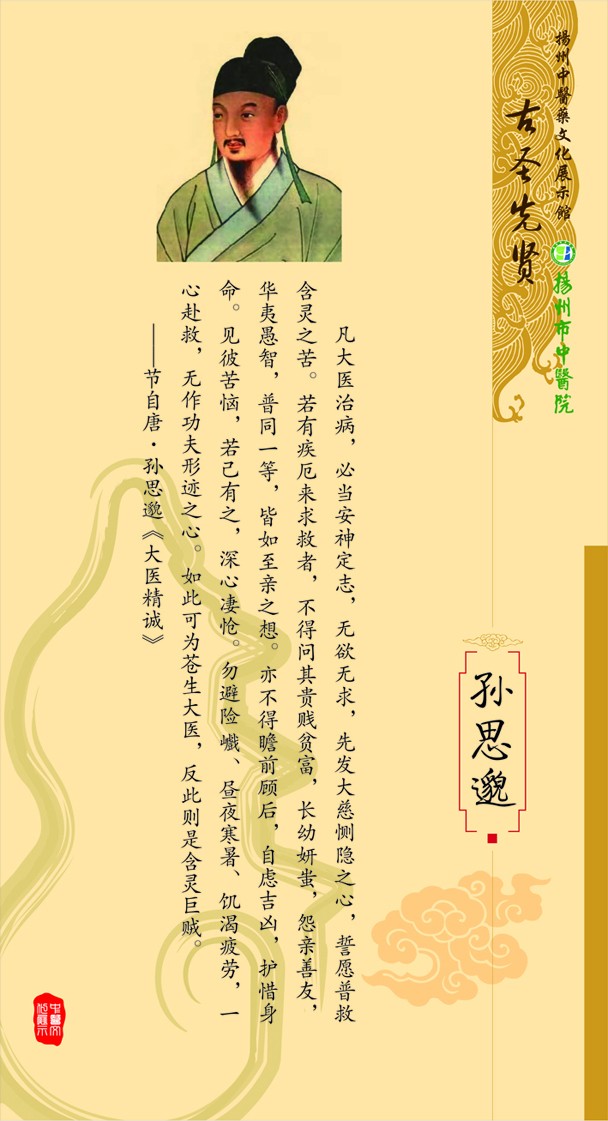 揚州中醫藥文化展示館
古圣先贤
揚州市中醫院
孙思邈
凡大医治病，必当安神定志，无欲无求，先发大慈恻隐之心，誓愿普救
含灵之苦。若有疾厄来求救者，不得问其贵贱贫富，长幼妍蚩，怨亲善友，
华夷愚智，普同一等，皆如至亲之想。亦不得瞻前顾后，自虑吉凶，护惜身
命。见彼苦恼，若己有之，深心凄怆。勿避险巇、昼夜寒暑、饥渴疲劳，一
心赴救，无作功夫形迹之心。如此可为苍生大医，反此则是含灵巨贼。
——节自唐·孙思邈《大医精诚》